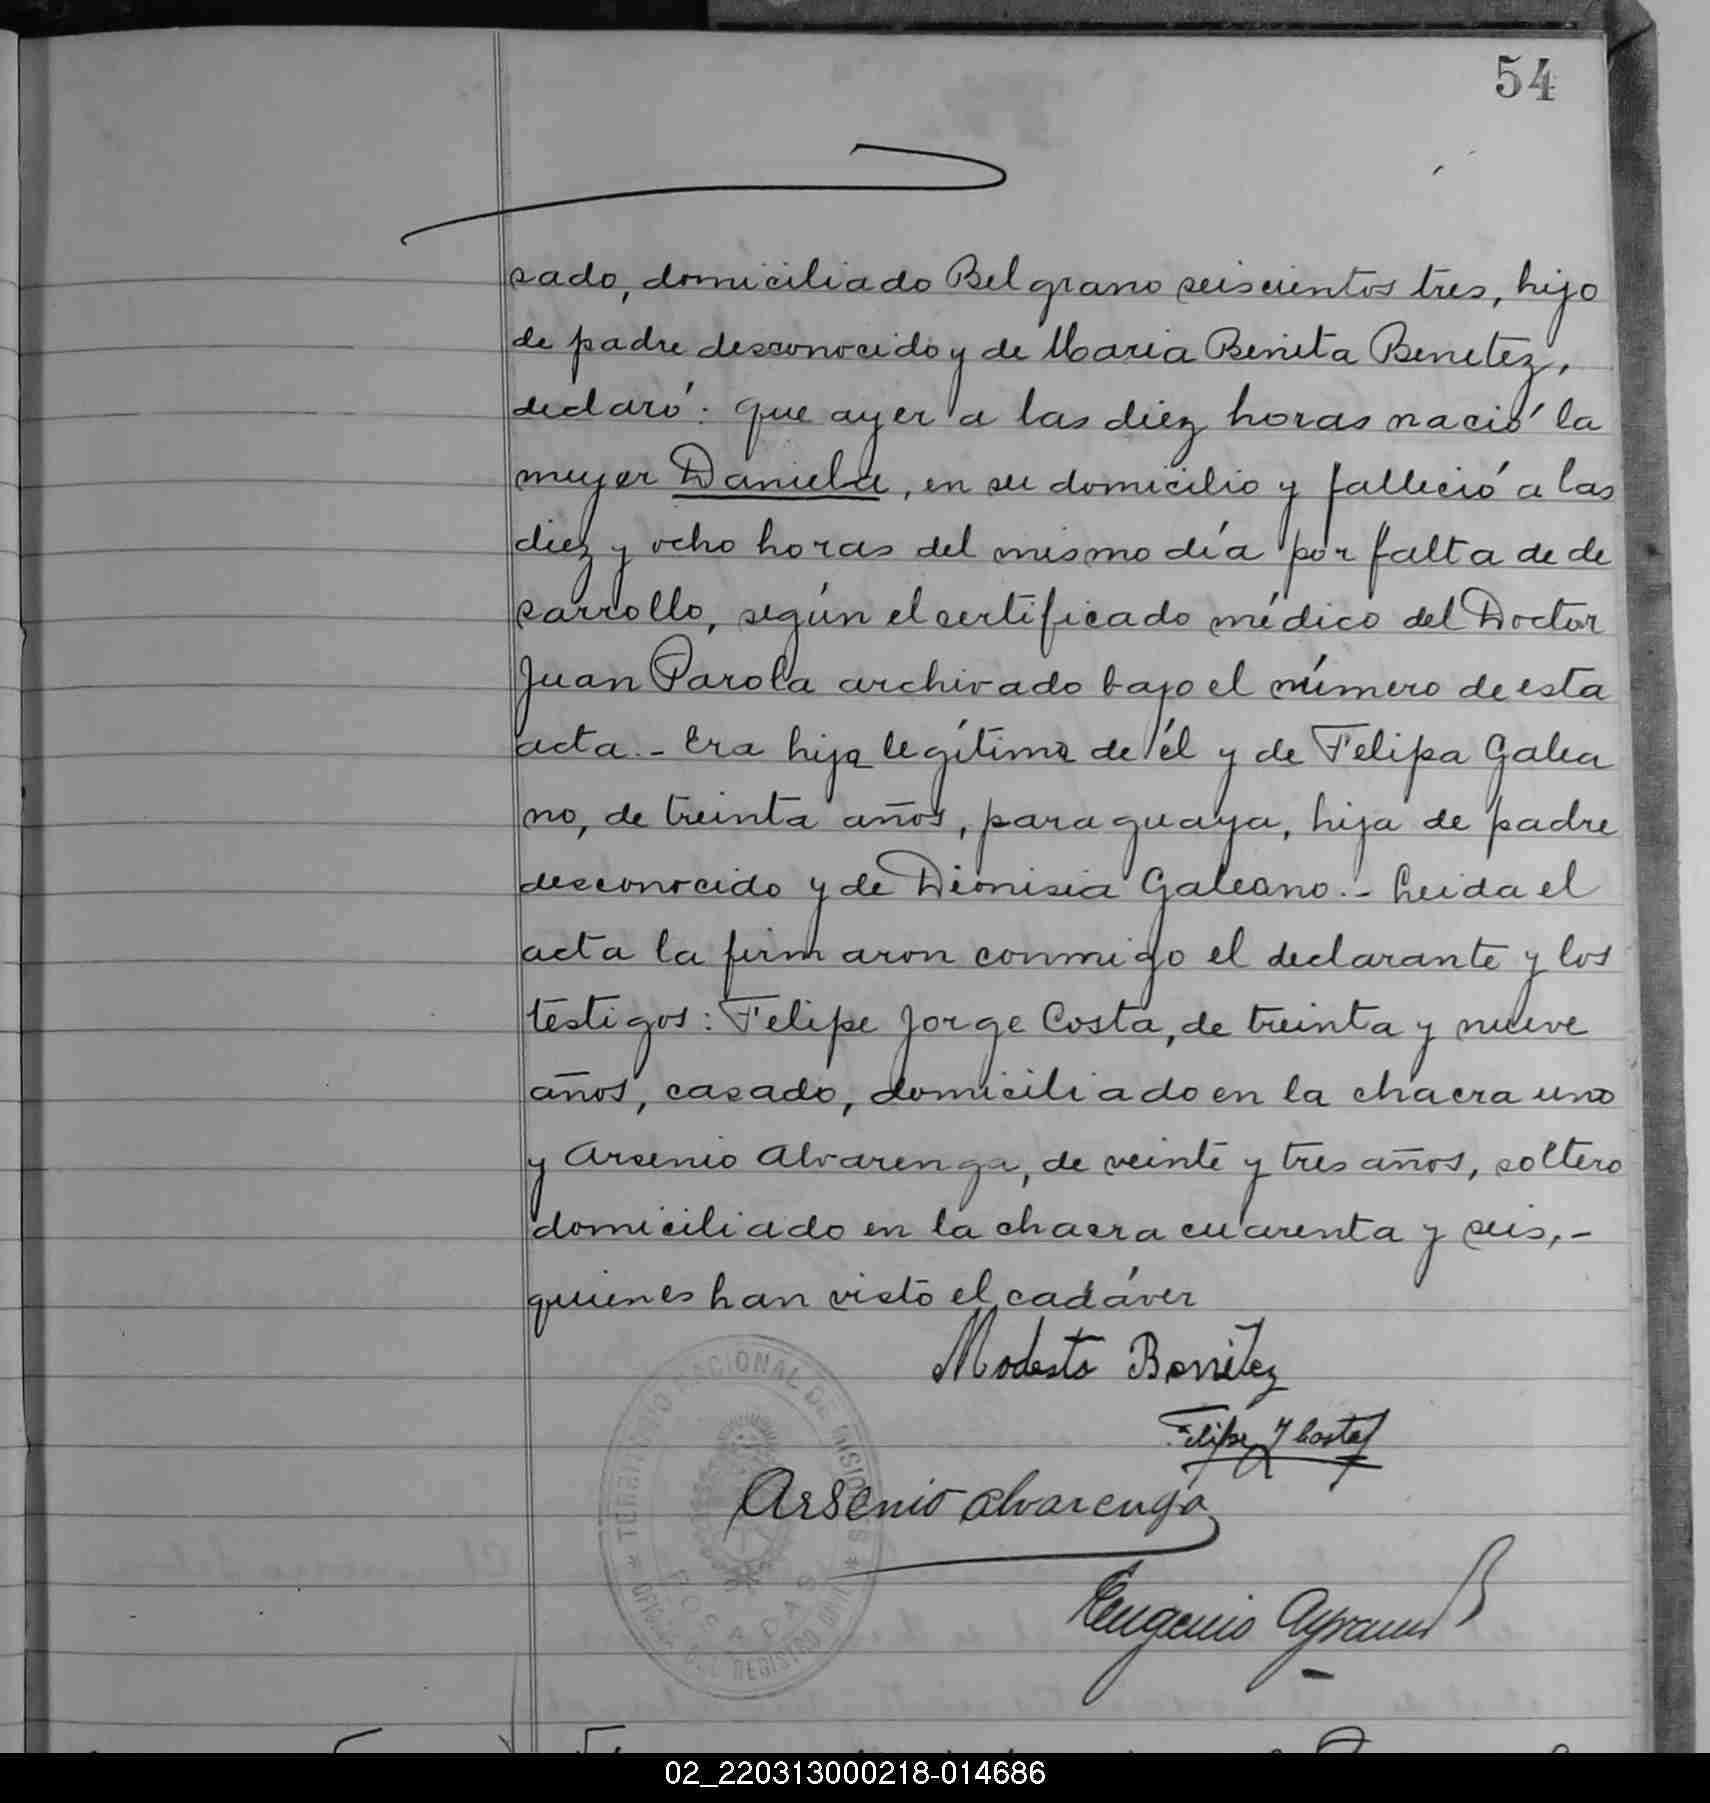 54
sado, domiciliado Belgrano seiscientos tres, hijo
de padre desconocido y de Maria Benita Benetez,
declaró: que ayer a las diez horas nació la
mujer Daniela, en su domicilio y falleció a las
diez y ocho horas del mismo día por falta de de
sarrollo, según el certificado médico del Doctor
Juan Parola archivado bajo el número de esta
acta.- Era hija legítima de él y de Felipa Galea
no, de treinta años, paraguaya, hija de padre
desconocido y de Dionisia Galeano.- Leida el
acta la firmaron conmigo el declarante y los
testigos: Felipe Jorge Costa, de treinta y nueve
años, casado, domiciliado en la chacra uno
y Arsenio Alvarenga, de veinte y tres años, soltero
domiciliado en la chacra cuarenta y seis,-
quienes han visto el cadáver
Modesto Benítez
Felipe J Costa
Arsenio Alvarenga
Eugenio
TERRITORIO NACIONAL DE MISIONES
POSADAS
OFICINA DEL REGISTRO CIVIL
02_220313000218-014686